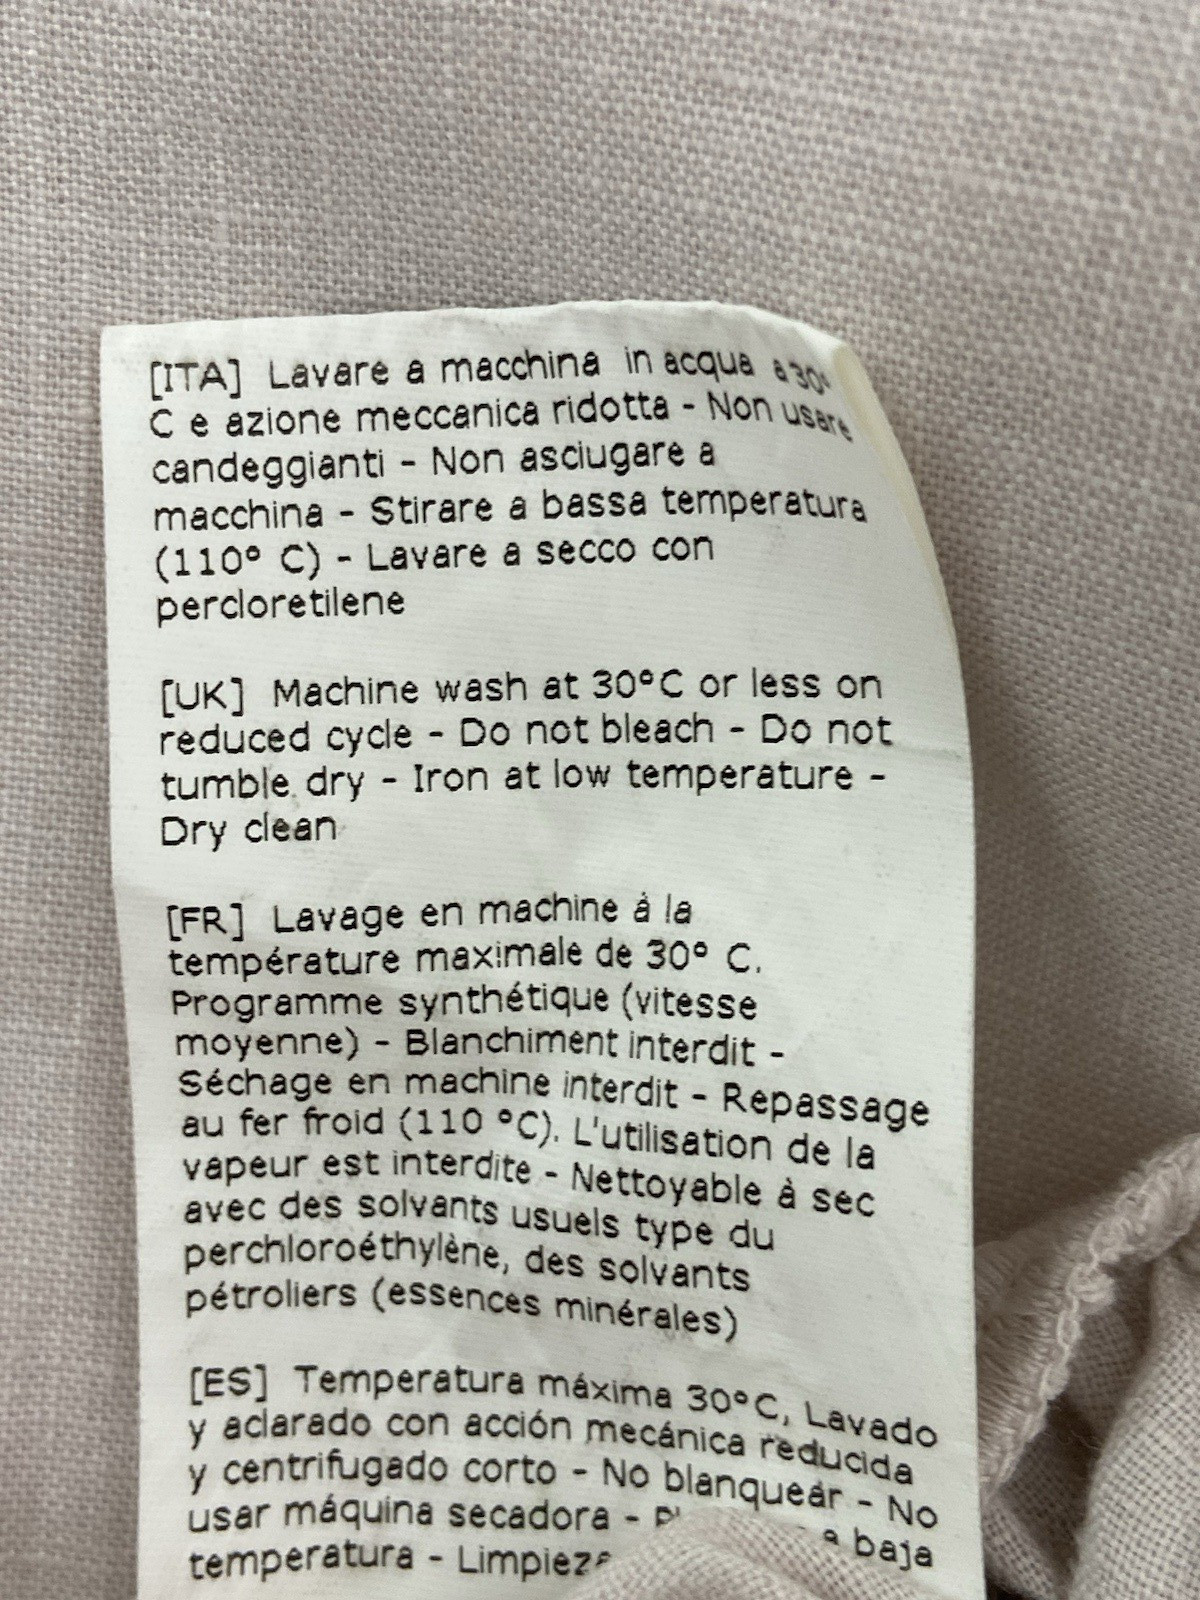 [ITA] Lavare a macchina in acqua a 30°
C e azione meccanica ridotta - Non usare
candeggianti - Non asciugare a
macchina - Stirare a bassa temperatura
(110° C) - Lavare a secco con
percloretilene
[UK] Machine wash at 30°C or less on
reduced cycle - Do not bleach - Do not
tumble dry - Iron at low temperature -
Dry clean
[FR] Lavage en machine à la
température maximale de 30° C.
Programme synthétique (vitesse
moyenne) - Blanchiment interdit -
Séchage en machine interdit - Repassage
au fer froid (110 °C). L'utilisation de la
vapeur est interdite - Nettoyable à sec
avec des solvants usuels type du
perchloroéthylène, des solvants
pétroliers (essences minérales)
[ES] Temperatura máxima 30°C, Lavado
y aclarado con acción mecánica reducida
y centrifugado corto - No blanquear - No
usar máquina secadora - a baja
temperatura -